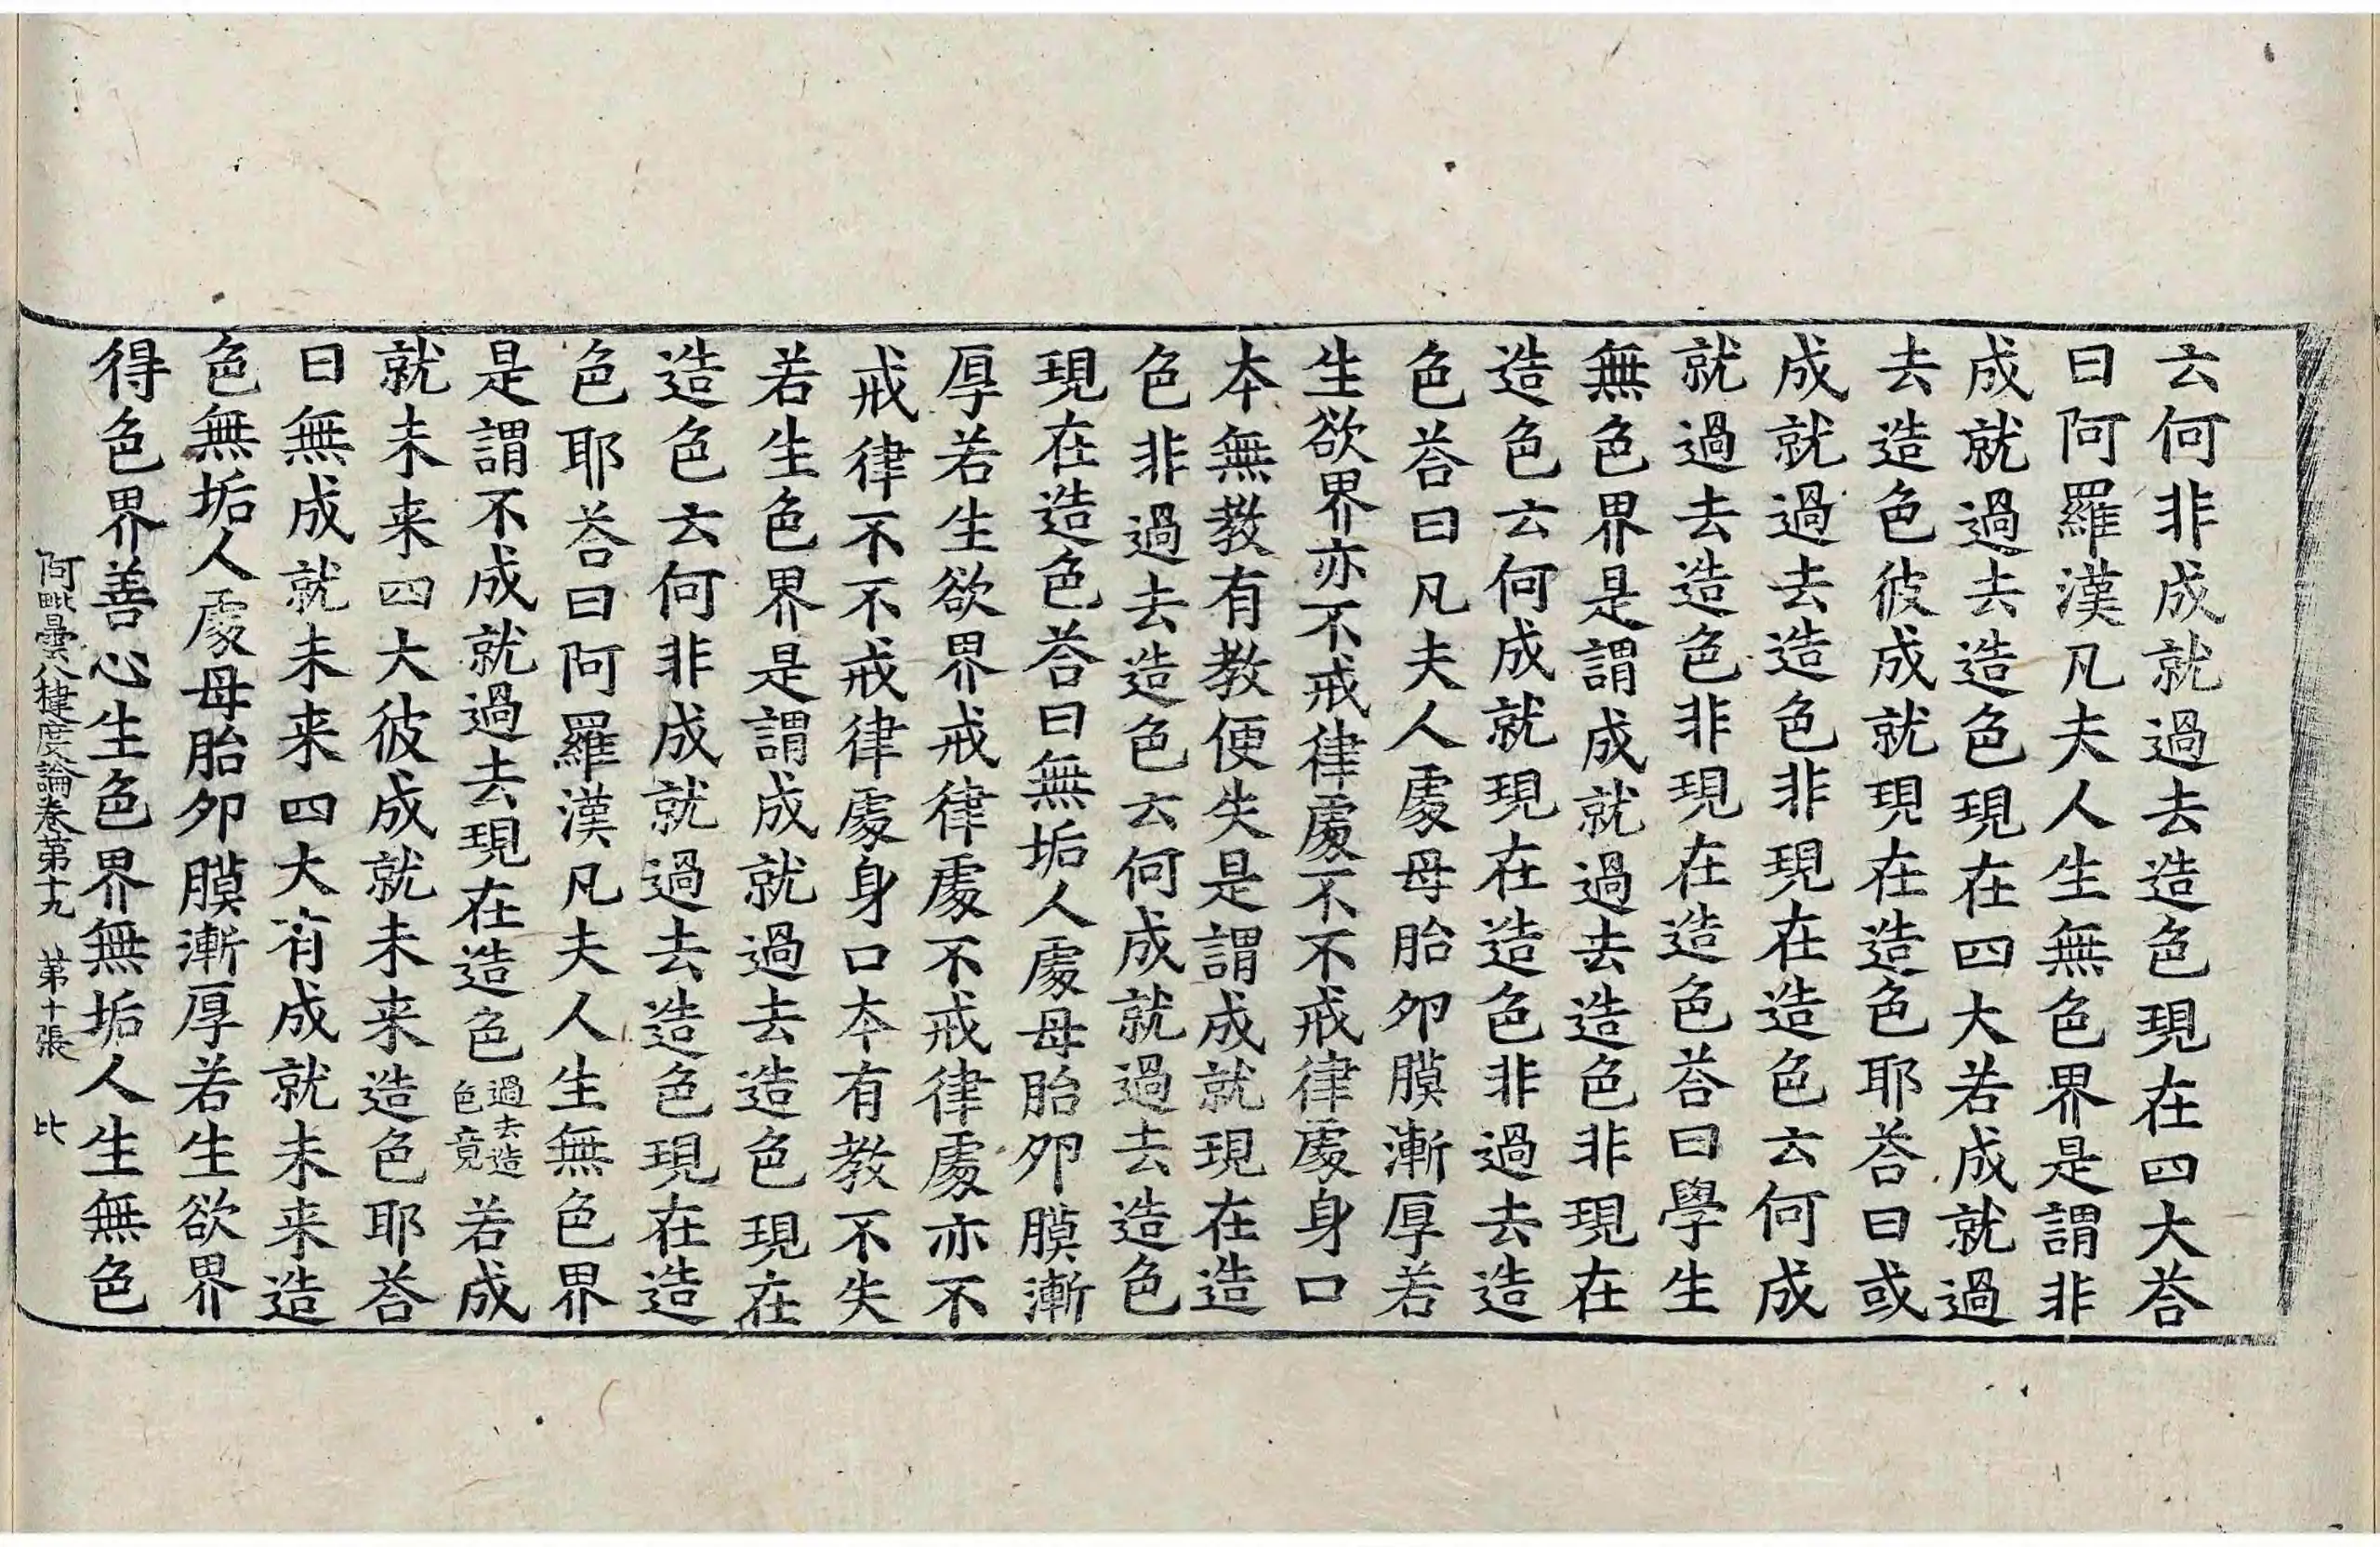 云何非成就過去造色現在四大荅
曰阿羅漢凡夫人生無色界是謂非
成就過去造色現在四大若成就過
去造色彼成就現在造色耶荅曰或
成就過去造色非現在造色云何成
就過去造色非現在造色荅曰學生
無色界是謂成就過去造色非現在
造色云何成就現在造色非過去造
色荅曰凡夫人處母胎夘膜漸厚若
生欲界亦不戒律處不不戒律處身口
本無教有教便失是謂成就現在造
色非過去造色云何成就過去造色
現在造色荅曰無垢人處母胎夘膜漸
厚若生欲界戒律處不戒律處亦不
戒律不不戒律處身口本有教不失
若生色界是謂成就過去造色現在
造色云何非成就過去造色現在造
色耶荅曰阿羅漢凡夫人生無色界
是謂不成就過去現在造色過去造色竟若成
就未来四大彼成就未来造色耶荅
曰無成就未来四大有成就未来造
色無垢人處母胎夘膜漸厚若生欲界
得色界善心生色界無垢人生無色
阿毗曇八揵度論卷第十九 第十張 比